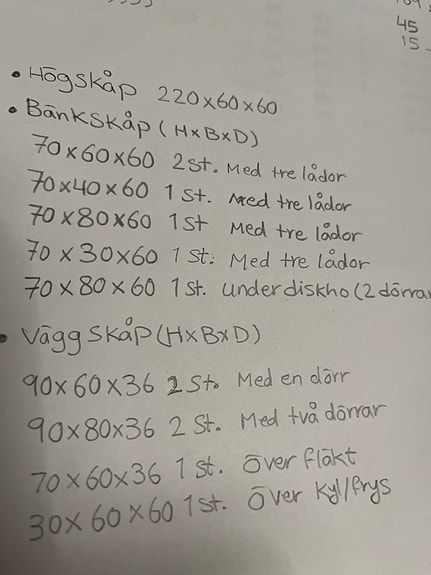 45
15
• Högskåp 220x60x60
• Bänkskåp (HxBxD)
70x60x60 2st. Med tre lådor
70x40x60 1st. med tre lådor
70x80x60 1st Med tre lådor
70x30x60 1st. Med tre lådor
70x80x60 1st. under diskho (2 dörrar
• Väggskåp (HxBxD)
90x60x36 2st. Med en dörr
90x80x36 2st. Med två dörrar
70x60x36 1st. Över fläkt
30x60x60 1st. Över Kyl/frys